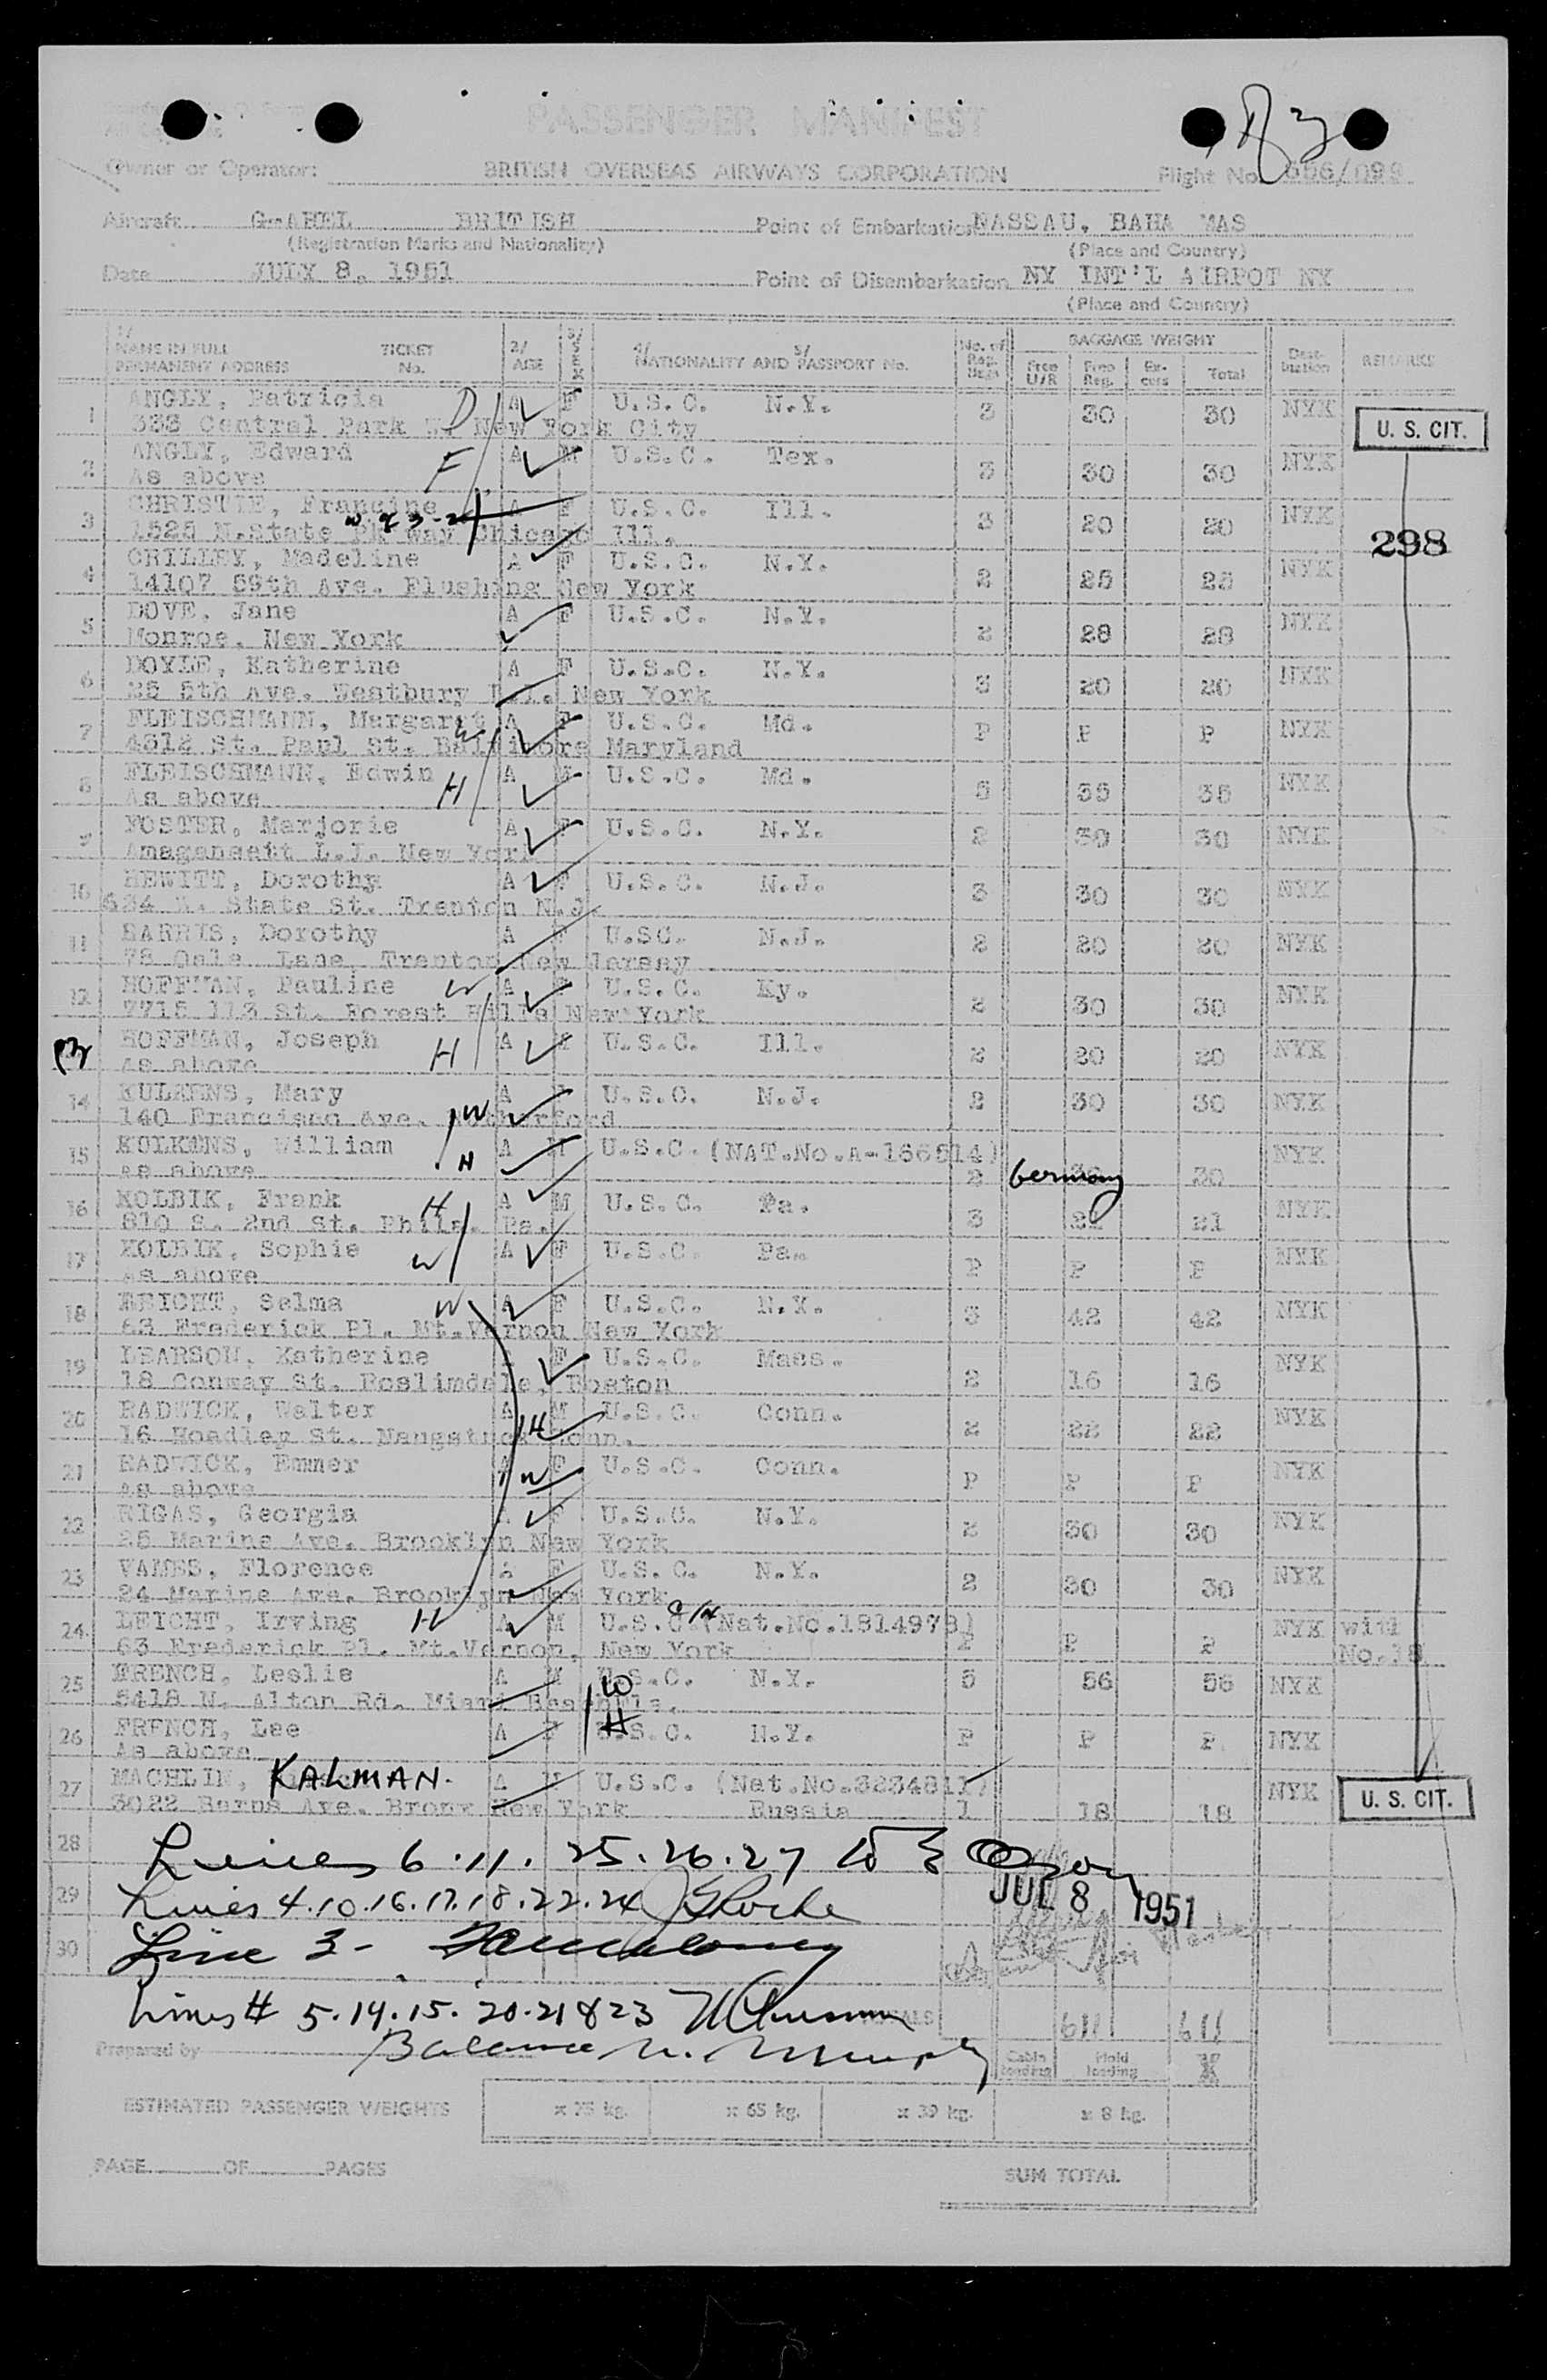 PASSENGER MANIFEST
Owner or Operator: BRITISH OVERSEAS AIRWAYS CORPORATION Flight No. 556/099
Aircraft G-AHEL BRITISH Point of Embarkation NASSAU, BAHA MAS
(Registration Marks and Nationality) (Place and Country)
Date JULY 8, 1951 Point of Disembarkation NY INT'L AIRPOT NY
(Place and Country)
1/ NAME IN FULL PERMANENT ADDRESS TICKET No. 2/ AGE 3/ SEX 4/ NATIONALITY AND 5/ PASSPORT No. No. of BAGGAGE WEIGHT Free U/R Free Reg. Ex-cess Total Dest-ination REMARKS
1 ANGLY, Patricia D A F U.S.C. N.Y. 3 30 30 NYK
333 Central Park W. New York City U. S. CIT.
2 ANGLY, Edward F A M U.S.C. Tex. 3 30 30 NYK
As above
3 CHRISTIE, Francine A F U.S.C. Ill. 3 20 20 NYK
1525 N.State Pk way Chicago Ill. 298
4 CRILLEY, Madeline A F U.S.C. N.Y. 2 25 25 NYK
14107 59th Ave. Flushing New York
5 DOVE, Jane A F U.S.C. N.Y. 2 28 28 NYK
Monroe, New York
6 DOYLE, Katherine A F U.S.C. N.Y. 3 20 20 NYK
25 5th Ave. Westbury L.I. New York
7 FLEISCHMANN, Margaret W A F U.S.C. Md. P P P NYK
4312 St. Paul St. Baltimore Maryland
8 FLEISCHMANN, Edwin H A M U.S.C. Md. 5 35 35 NYK
As above
9 FOSTER, Marjorie A F U.S.C. N.Y. 2 30 30 NYK
Amagansett L.I. New York
10 HEWITT, Dorothy A F U.S.C. N.J. 3 30 30 NYK
634 W. State St. Trenton N.J.
11 HARRIS, Dorothy A F U.SC. N.J. 2 20 20 NYK
78 Lane, Trenton New Jersey
12 HOFFMAN, Pauline W A F U.S.C. Ky. 2 30 30 NYK
7715 113 St. Forest Hills New York
HOFFMAN, Joseph H A U.S.C. Ill. 2 20 20 NYK
As above
14 KULKENS, Mary W A F U.S.C. N.J. 2 30 30 NYK
140 Francisco Ave. Rutherford
15 KULKENS, William H A M U.S.C. (NAT.No.A-166514) 2 Germany 30 30 NYK
As above
16 KOLBIK, Frank H A M U.S.C. Pa. 3 21 21 NYK
810 S. 2nd St. Phila. Pa.
17 KOLBIK, Sophie W A F U.S.C. Pa. P P P NYK
As above
18 LEICHT, Selma W A F U.S.C. N.Y. 3 42 42 NYK
63 Frederick Pl. Mt.Vernon New York
19 LEARSON, Katherine A F U.S.C. Mass. 2 16 16 NYK
18 Conway St. Roslindale, Boston
20 RADWICK, Walter H A M U.S.C. Conn. 2 22 22 NYK
16 Hoadley St. Naugatuck Conn.
21 RADWICK, Emmer W A F U.S.C. Conn. P P P NYK
As above
22 RIGAS, Georgia A F U.S.C. N.Y. 2 30 30 NYK
25 Marine Ave. Brooklyn New York
23 VAMES, Florence A F U.S.C. N.Y. 2 30 30 NYK
24 Marine Ave. Brooklyn New York
24 LEICHT, Irving H A M U.S.C. (Nat.No.1814978) P P P NYK with
63 Frederick Pl. Mt.Vernon, New York No.18
25 FRENCH, Leslie A W U.S.C. N.Y. 5 56 56 NYK
5418 N. Alton Rd. Miami Beach Fla.
26 FRENCH, Lee A H U.S.C. N.Y. P P P NYK
As above
27 MACHLIN, KALMAN. A M U.S.C. (Nat.No.3234811) NYK
3022 Barns Ave. Bronx New York Russia 1 18 18 U. S. CIT.
28 Lines 6.11. 25.26.27
29 Lines 4.10.16.17.18.22.24 JUL 8 1951
30 Line 3-
Lines # 5.14.15. 20.21 & 23 TOTALS 611 611
Prepared by Balance Cabin loading Hold loading
ESTIMATED PASSENGER WEIGHTS x 75 kg. x 65 kg. x 39 kg. x 8 kg.
PAGE OF PAGES SUM TOTAL